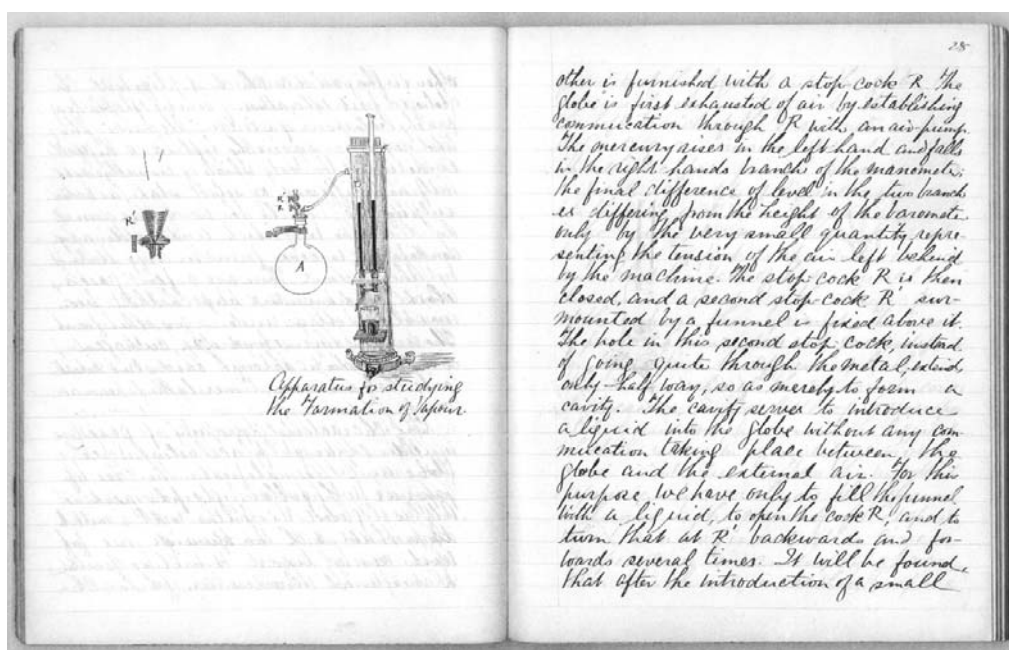 R'
R'
R
A
Apparatus for studying
the Formation of Vapour.
other is furnished with a stop cock R. The
globe is first exhausted of air by establishing
commucation through R with an air-pump.
The mercury rises in the left hand and falls
in the right hands branch of the manomete;
the final difference of level in the two branch
es differing from the height of the baromete
only by the very small quantity repre-
senting the tension of the air left behind
by the machine. The stop cock R is then
closed, and a second stop-cock R' sur-
mounted by a funnel is fixed above it.
The hole in this second stop cock, instead
of going quite through the metal, extend
only half way, so as merely to form a
cavity. The cavity server to introduce
a liquid into the globe without any com-
mication taking place between the
globe and the external air. For this
purpose we have only to fill the funnel
with a liquid, to open the cock R, and to
turn that at R' backwards and for-
wards several times. It will be found,
that after the introduction of a small